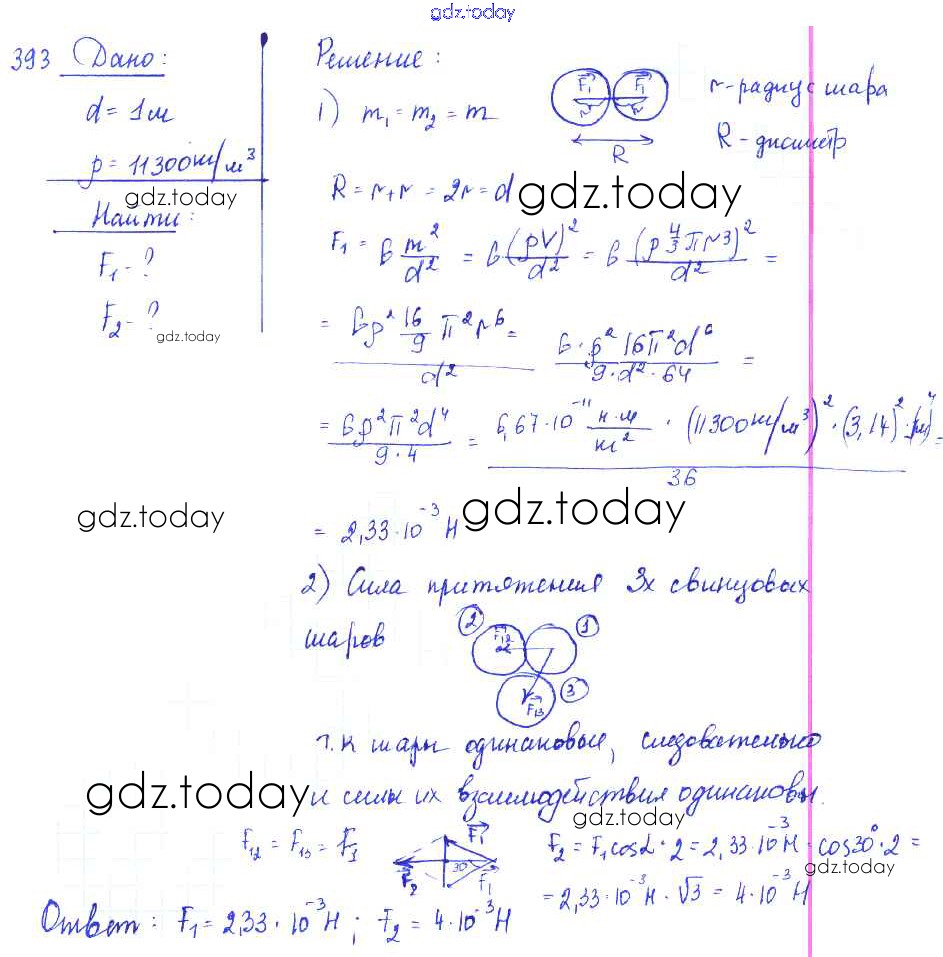 gdz.today
393 Дано:
d = 1м
ρ = 11300кг/м³
gdz.today
Найти:
F₁ - ?
F₂ - ?
gdz.today
Решение:
1) m₁ = m₂ = m
F₁ F₁
r r
R
r - радиус шара
R - диаметр
R = r + r = 2r = d
gdz.today
F₁ = G m²/d² = G (ρV)²/d² = G (ρ 4/3 πr³)²/d² =
= Gρ² 16/9 π² r⁶ / d² = G · ρ² 16π²d⁶ / 9 · d² · 64 =
= Gρ²π²d⁴ / 9 · 4 = 6,67 · 10⁻¹¹ н·м/кг² · (11300кг/м³)² · (3,14)² · (1м)⁴ / 36 =
gdz.today
= 2,33 · 10⁻³ Н
gdz.today
2) Сила притяжения 3х свинцовых
шаров
2 F₁₂ 1
3 F₁₃
т.к шары одинаковые, следовательно
и силы их взаимодействия одинаковы.
gdz.today
gdz.today
F₁₂ = F₁₃ = F₁
F₁ F₂ 30° F₁
F₂ = F₁cosα · 2 = 2,33 · 10⁻³Н · cos30° · 2 =
gdz.today
= 2,33 · 10⁻³Н · √3 = 4 · 10⁻³ Н
Ответ: F₁ = 2,33 · 10⁻³Н; F₂ = 4 · 10⁻³Н